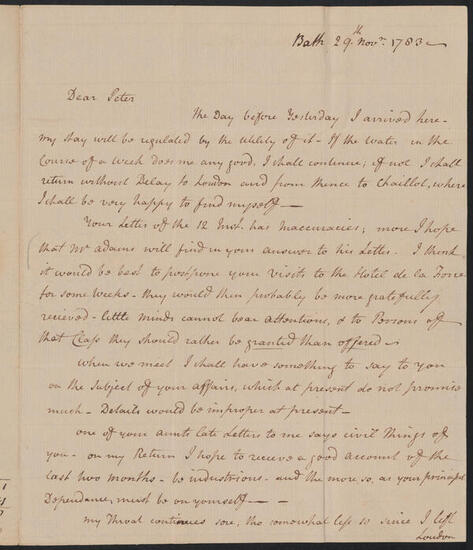 Bath 29th Novr. 1783
Dear Peter
The Day before Yesterday I arrived here -
my stay will be regulated by the utility of it - If the water in the
Course of a week does me any good, I shall continue; if not I shall
return without Delay to London and from thence to Chaillot, where
I shall be very happy to find myself -
Your Letter of the 12 Inst. has Inaccuracies; more I hope
that Mr Adams will find in your answer to his Letter. I think
it would be best to postpone your visits to the Hotel de la Force
for some weeks - they would then probably be more gratefully
recieved - little minds cannot bear attentions, & to Persons of
that Class they should rather be granted than offered -
when we meet I shall have something to say to you
on the Subject of your affairs, which at present do not promise
much - Details would be improper at present -
one of your aunts late Letters to me says civil Things of
you - on my Return I hope to recieve a good account of the
last two months - be industrious - and the more so, as your principal
Dependance, must be on yourself -
my Throat continues sore, tho somewhat less so since I left
London